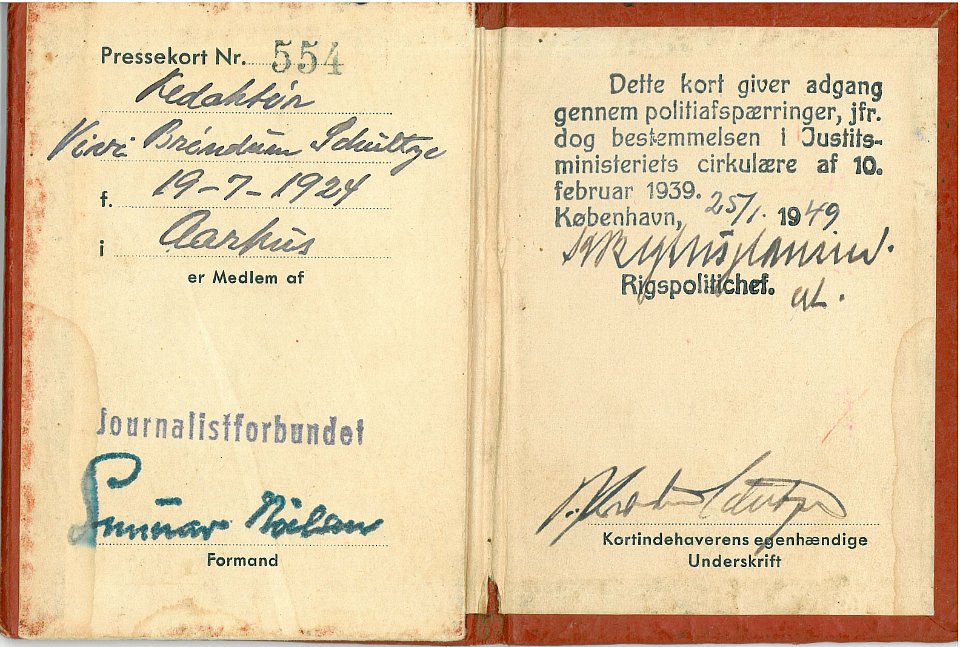 Pressekort Nr. 554
Redaktør
Vivi Bröndum Schultze
f. 19-7-1924
i Aarhus
er Medlem af
Journalistforbundet
Gunnar
Formand
Dette kort giver adgang
gennem politiafspærringer, jfr.
dog bestemmelsen i Justits-
ministeriets cirkulære af 10.
februar 1939.
København, 25/1. 1949
Rigspolitichef.
Kortindehaverens egenhændige
Underskrift